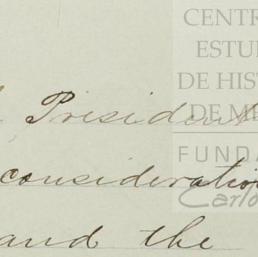 President
consideration
and the
CENTR
ESTU
DE HIST
DE M
FUNDA
Carlo